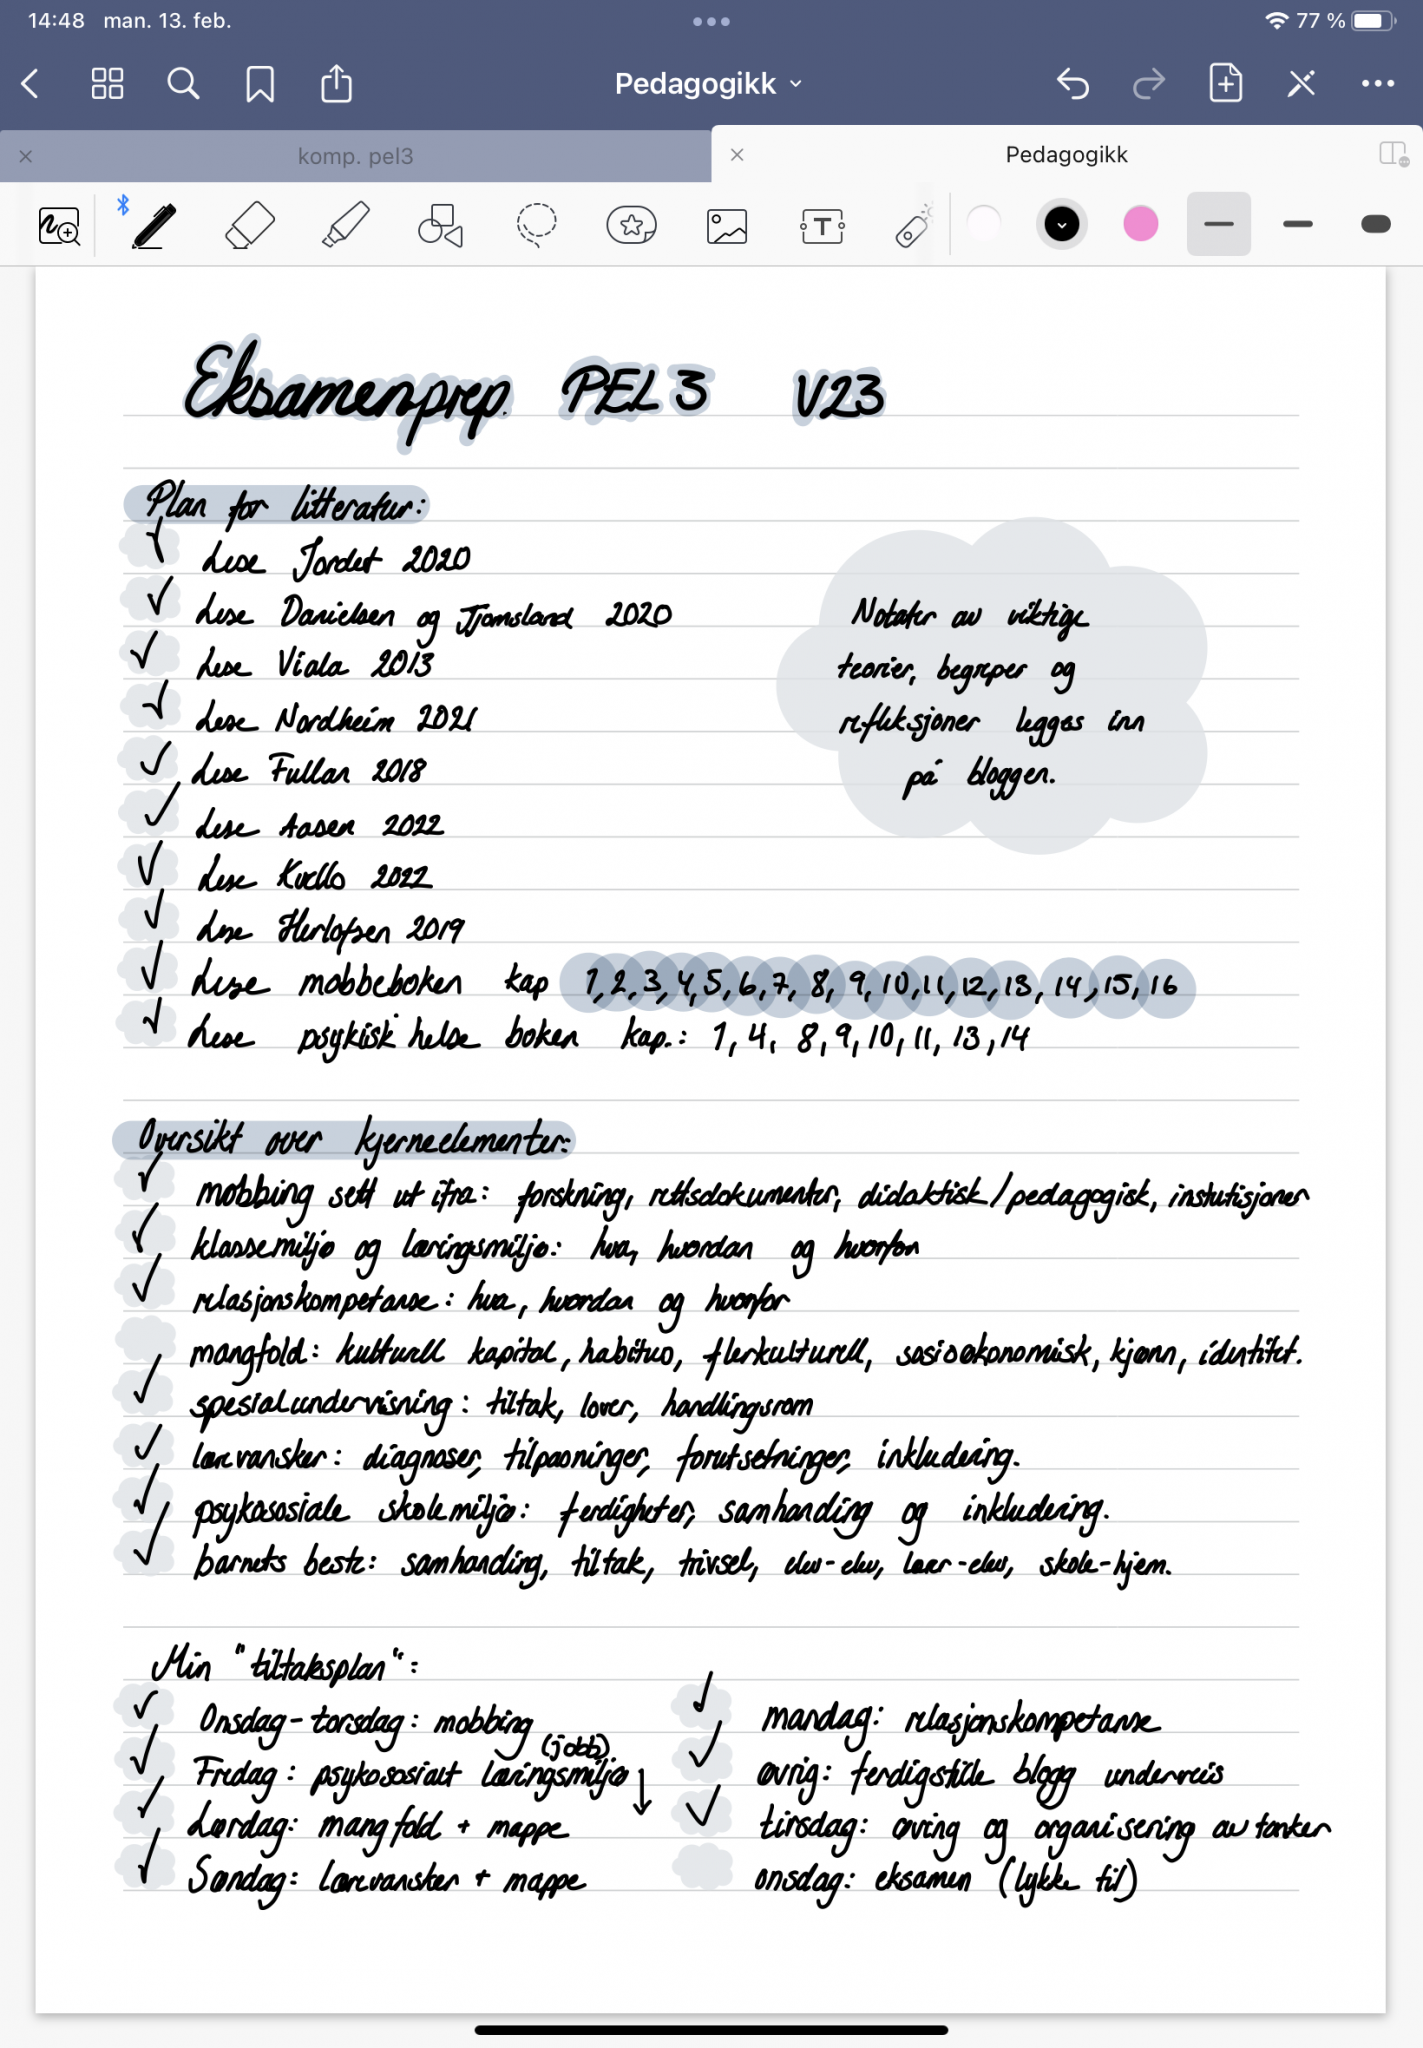 14:48 man. 13. feb.
77 %
Pedagogikk
komp. pel3
Pedagogikk
T
Eksamenprep. PEL 3 V23
Plan for litteratur:
Lese Jordet 2020
Lese Danielsen og Tjomsland 2020
Lese Viala 2013
Lese Nordheim 2021
Lese Fullan 2018
Lese Aasen 2022
Lese Kvello 2022
Lese Herlofsen 2019
Lese mobbeboken kap 1, 2, 3, 4, 5, 6, 7, 8, 9, 10, 11, 12, 13, 14, 15, 16
Lese psykisk helse boken kap.: 1, 4, 8, 9, 10, 11, 13, 14
Notater av viktige
teorier, begreper og
refleksjoner legges inn
på bloggen.
Oversikt over kjerneelementer:
mobbing sett ut ifra: forskning, rettsdokumenter, didaktisk/pedagogisk, instutisjoner
klassemiljø og læringsmiljø: hva, hvordan og hvorfor
relasjonskompetanse: hva, hvordan og hvorfor
mangfold: kulturell kapital, habitus, flerkulturell, sosioøkonomisk, kjønn, identitet.
spesialundervisning: tiltak, lover, handlingsrom
lærevansker: diagnoser, tilpasninger, forutsetninger, inkludering.
psykososiale skolemiljø: ferdigheter, samhandling og inkludering.
barnets beste: samhandling, tiltak, trivsel, elev-elev, lærer-elev, skole-hjem.
Min "tiltaksplan":
Onsdag-torsdag: mobbing
(jobb)
Fredag: psykososialt læringsmiljø ↓
Lørdag: mangfold + mappe
Søndag: lærevansker + mappe
mandag: relasjonskompetanse
øvrig: ferdigstille blogg underveis
tirsdag: øving og organisering av tanker
onsdag: eksamen (lykke til)